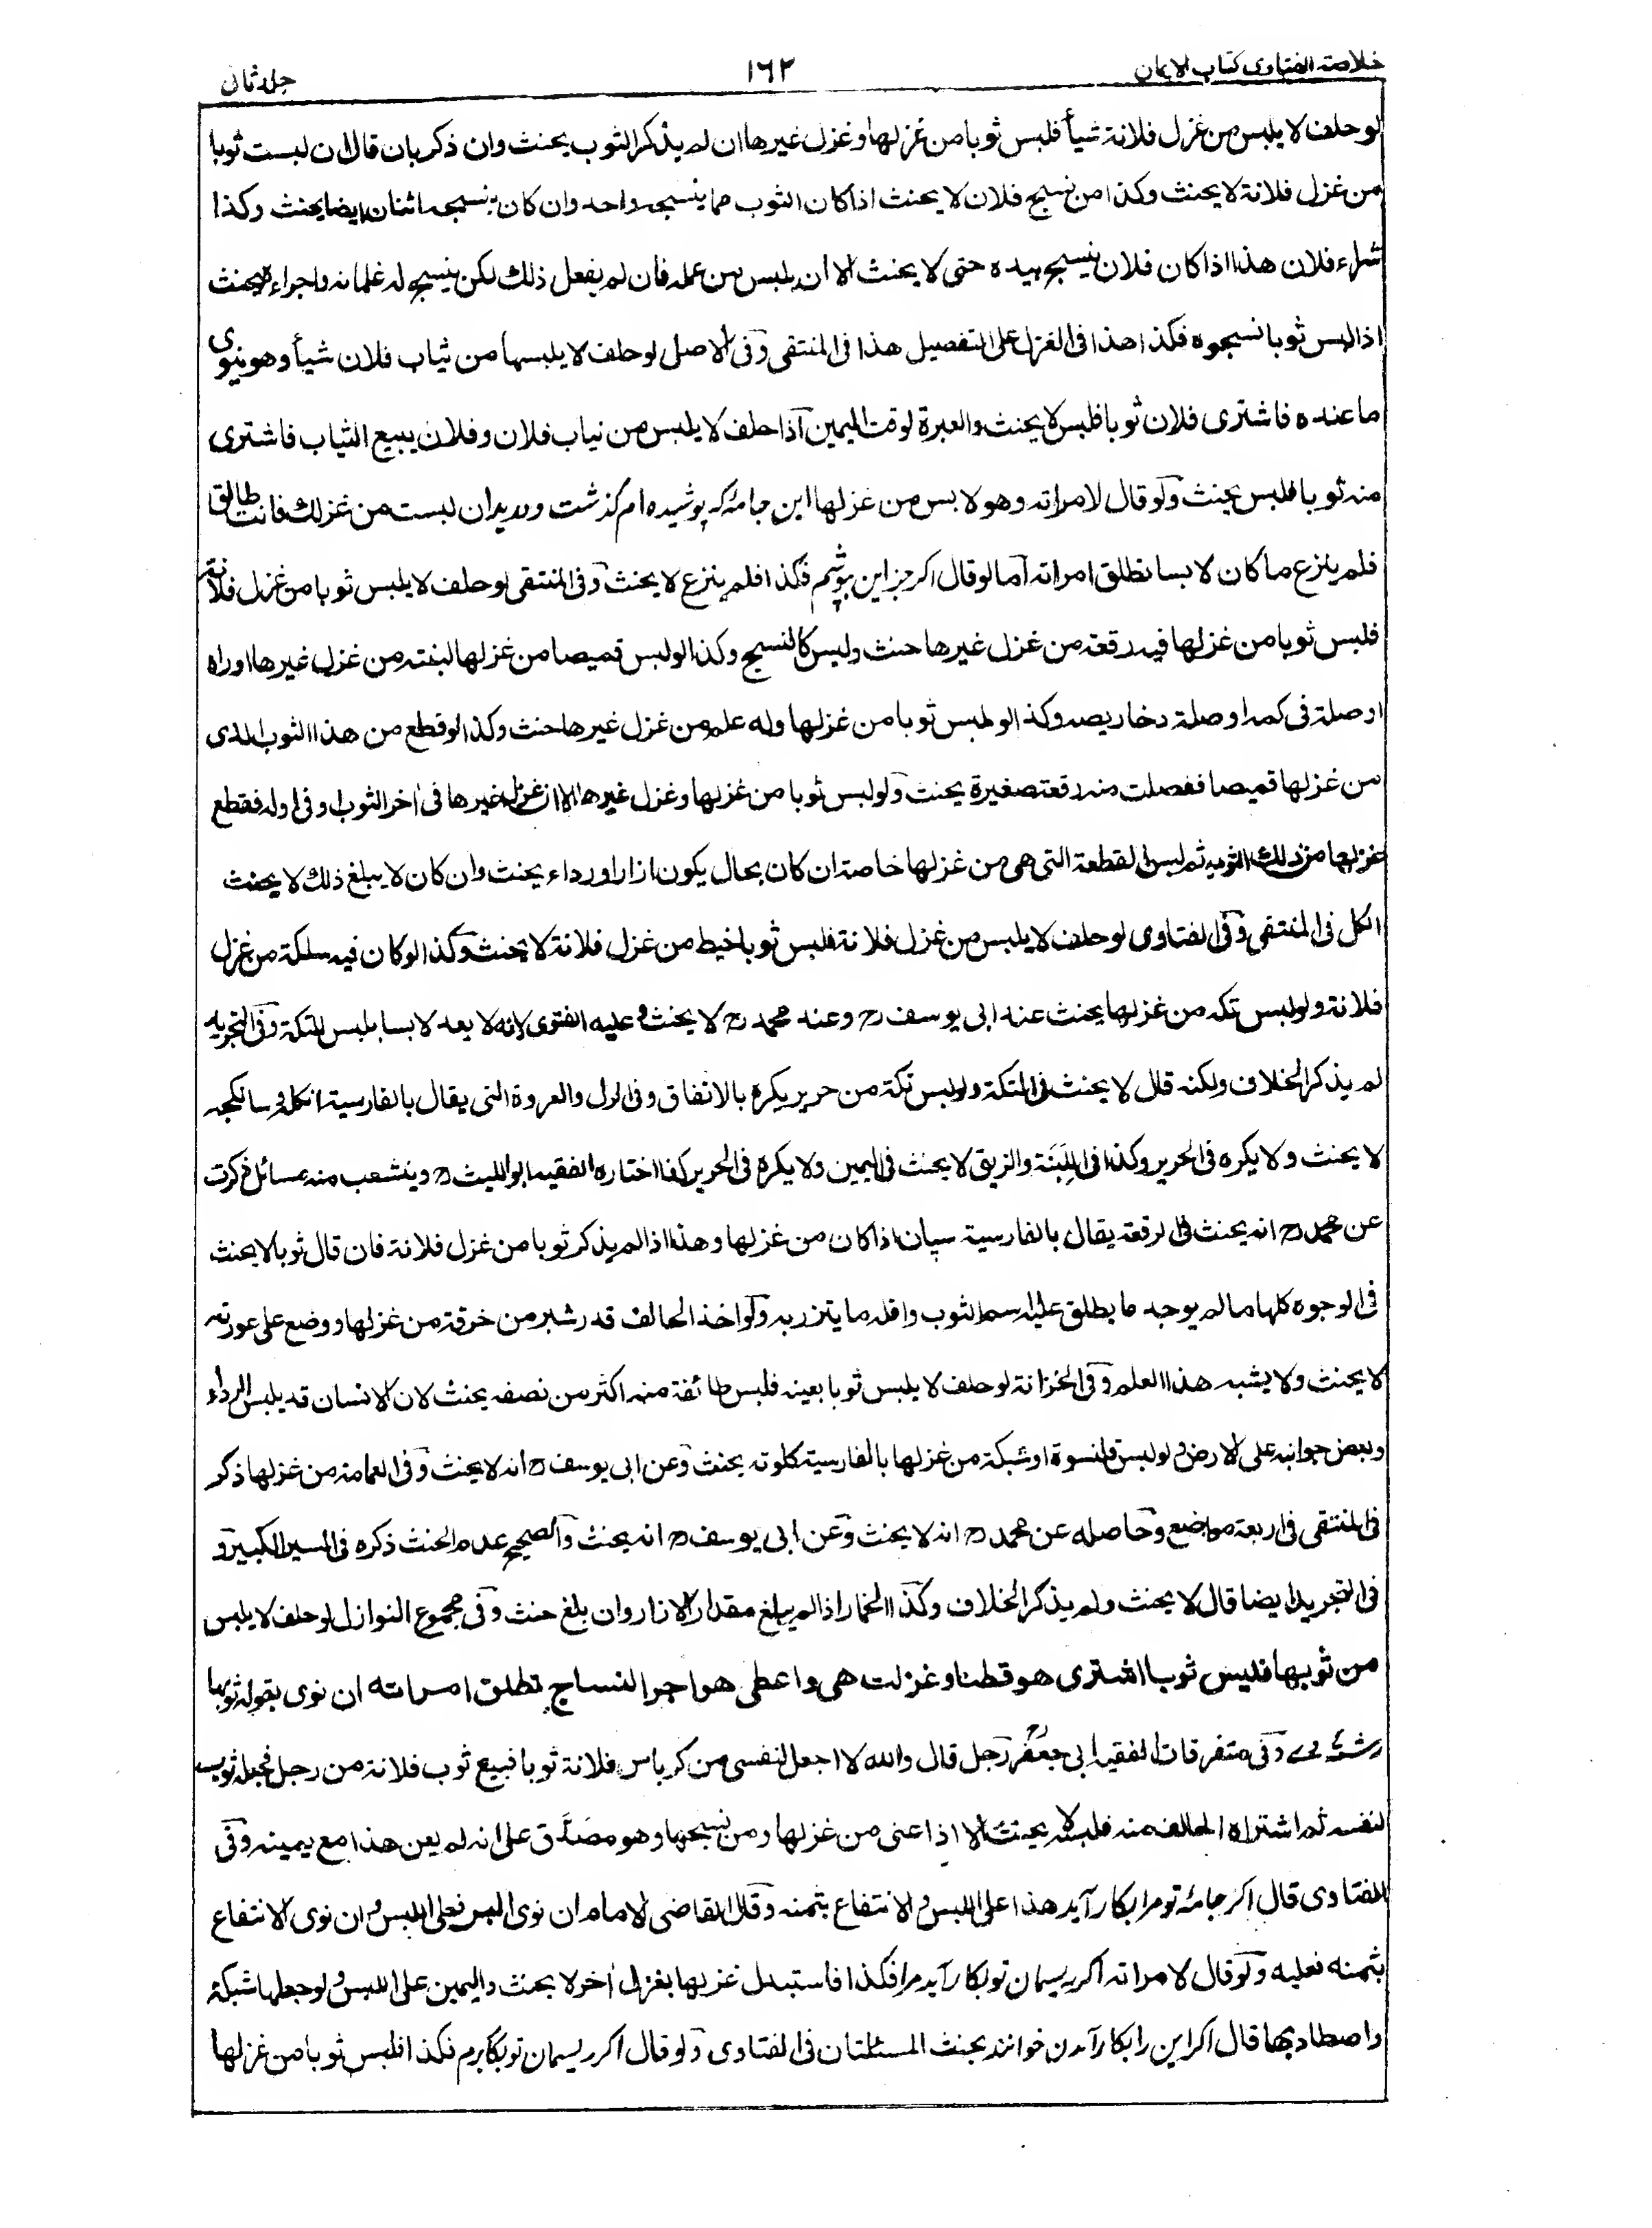 خلاصة الفتاوى كتاب الايمان ١٦٢ جلد ثانى
لو حلف لا يلبس من غزل فلانة شيأ فلبس ثوبا من غزلها وغزل غيرها ان لم يذكر الثوب يحنث وان ذكر بان قال ان لبست ثوبا
من غزل فلانة لا يحنث وكذا من نسيج فلان لا يحنث اذا كان الثوب مما ينسجه واحد وان كان ينسجه اثنان ايضا يحنث وكذا
شراء فلان هذا اذا كان فلان ينسج بيده حتى لا يحنث الا ان يلبس من عمله فان لم يفعل ذلك لكن ينسج له غلمانه واجراءه يحنث
اذا لبس ثوبا نسجوه فكذا هذا فى الغزل على التفصيل هذا فى المنتقى وفى الاصل لو حلف لا يلبسها من ثياب فلان شيأ وهو ينوى
ما عنده فاشترى فلان ثوبا فلبس لا يحنث والعبرة لوقت اليمين اذا حلف لا يلبس من ثياب فلان وفلان يبيع الثياب فاشترى
منه ثوبا فلبس يحنث ولو قال لامراته وهو لابس من غزلها اين جامۀ كه پوشيده ام گذشت وبديدان لبست من غزلك فانت طالق
فلم ينزع ما كان لابسا تطلق امراته اما لو قال اكر جز اين بپوشم فكذا فلم ينزع لا يحنث وفى المنتقى لو حلف لا يلبس ثوبا من غزل فلانة
فلبس ثوبا من غزلها فيه رقعة من غزل غيرها حنث وليس كالنسيج وكذا لو لبس قميصا من غزلها لبنته من غزل غيرها اوراه
او صلة فى كمه او صلة دخاريصه وكذا لو لبس ثوبا من غزلها وله علم من غزل غيرها حنث وكذا لو قطع من هذا الثوب الذى
من غزلها قميصا ففصلت منه رقعة صغيرة يحنث ولو لبس ثوبا من غزلها وغزل غيرها الا ان غزل غيرها فى اخر الثوب او فى اوله فقطع
غزلها من ذلك الثوب ثم لبس القطعة التى هى من غزلها خاصة ان كان بحال يكون ازارا او رداء يحنث وان كان لا يبلغ ذلك لا يحنث
الكل فى المنتقى وفى الفتاوى لو حلف لا يلبس من غزل فلانة فلبس ثوبا خيط من غزل فلانة لا يحنث وكذا لو كان فيه سلكة من غزل
فلانة ولو لبس تكة من غزلها يحنث عند ابى يوسف رح وعند محمد رح لا يحنث وعليه الفتوى لانه لا يعد لابسا بلبس التكة وفى التجريد
لم يذكر الخلاف ولكنه قال لا يحنث فى التكة ولو لبس تكة من حرير يكره بالاتفاق وفى الزر والعروة التى يقال بالفارسية
لا يحنث ولا يكره فى الحرير وكذا فى اللبنة والزيق لا يحنث فى اليمين ولا يكره فى الحرير كذا اختاره الفقيه ابو الليث رح وينشعب منه مسائل ذكرت
عن محمد رح انه يحنث فى الرقعة يقال بالفارسية سپان اذا كان من غزلها وهذا اذا لم يذكر ثوبا من غزل فلانة فان قال ثوبا لا يحنث
فى الوجوه كلها ما لم يوجد ما يطلق عليه اسم الثوب واقله ما يتزر به ولو اخذ الحالف قدر شبر من خرقة من غزلها ووضع على عورته
لا يحنث ولا يشبه هذا العلم وفى الخزانة لو حلف لا يلبس ثوبا بعينه فلبس طائفة منه اكثر من نصفه يحنث لان الانسان قد يلبس الرداء
وبعض جوانبه على الارض ولو لبس قلنسوة او شبكة من غزلها بالفارسية كلوته يحنث وعن ابى يوسف رح انه لا يحنث وفى العمامة من غزلها ذكر
فى المنتقى فى اربعة مواضع وحاصله عن محمد رح انه لا يحنث وعن ابى يوسف رح انه يحنث والصحيح عدم الحنث ذكره فى السير الكبير و
فى التجريد ايضا قال لا يحنث ولم يذكر الخلاف وكذا الخمار اذا لم يبلغ مقدار الازار وان بلغ حنث وفى مجموع النوازل لو حلف لا يلبس
من ثوبها فلبس ثوبا اشترى هو قطنا وغزلت هى واعطى هو اجر النساج تطلق امراته ان نوى بقوله ثوبها
رشتۀ وى وفى متفرقات الفقيه ابى جعفر رح رجل قال والله لا اجعل لنفسى من كرباس فلانة ثوبا فبيع ثوب فلانة من رجل فجعله ثوبه
لنفسه ثم اشتراه الحالف منه فلبسه لا يحنث الا اذا عنى من غزلها ومن نسجها وهو مصدق على انه لم يعن هذا مع يمينه وفى
الفتاوى قال اكر جامۀ تو مرا بكار آيد هذا على اللبس والانتفاع بثمنه وقال القاضى الامام ان نوى اللبس فعلى اللبس وان نوى الانتفاع
بثمنه فعليه ولو قال لامراته اكر ريسمان تو بكار آيد مرا فكذا فاستبدل غزلها بغزل اخر لا يحنث واليمين على اللبس ولو جعلها شبكة
واصطاد بها قال اكر اين را بكار آمدن خوانند يحنث المسئلتان فى الفتاوى ولو قال اكر ريسمان تو بكار برم فكذا فلبس ثوبا من غزلها